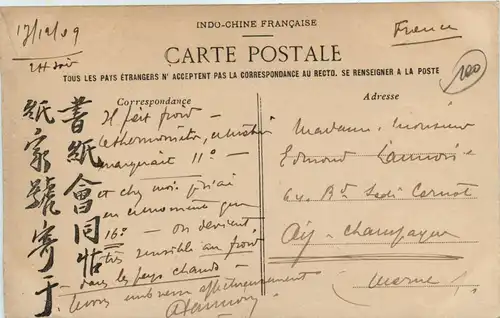 17/12/09
INDO-CHINE FRANÇAISE
France
CARTE POSTALE
100
TOUS LES PAYS ÉTRANGERS N' ACCEPTENT PAS LA CORRESPONDANCE AU RECTO. SE RENSEIGNER A LA POSTE
Correspondance
Il fait froid –
Le thermomètre, ce matin
marquait 11° –
et chez moi j'ai
en ce moment que
16° – On devient
très sensible au froid
dans les pays chauds –
embrasse affectueusement
書紙會同帖
紙家號寄于
Adresse
Madame, Monsieur
Edmond
64, Bd Sadi Carnot
Aÿ – Champagne
Marne